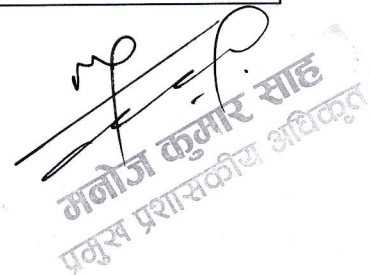 मनोज कुमार साह
प्रमुख प्रशासकीय अधिकृत